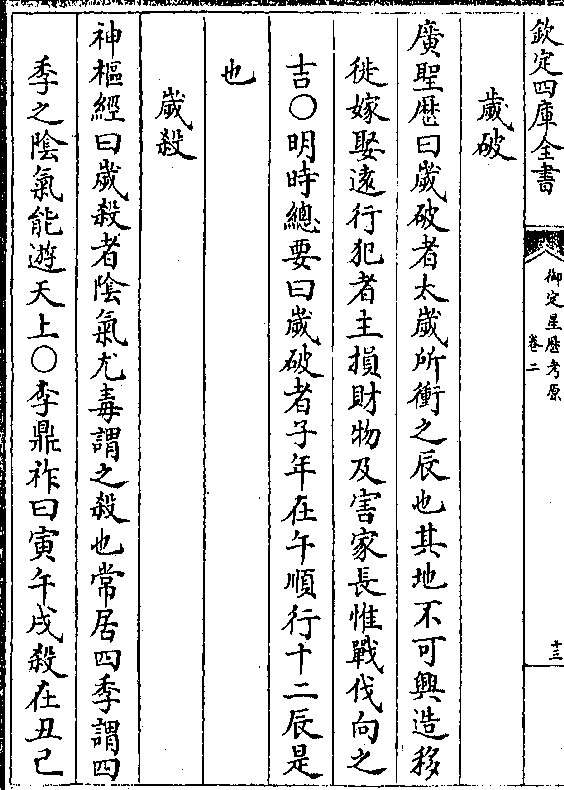 欽定四庫全書
御定星歷考原
卷二
十三
歲破
廣聖歷曰歲破者太歲所衝之辰也其地不可興造移
徙嫁娶遠行犯者主損財物及害家長惟戰伐向之
吉○明時總要曰歲破者子年在午順行十二辰是
也
歲殺
神樞經曰歲殺者陰氣尤毒謂之殺也常居四季謂四
季之陰氣能遊天上○李鼎祚曰寅午戌殺在丑已